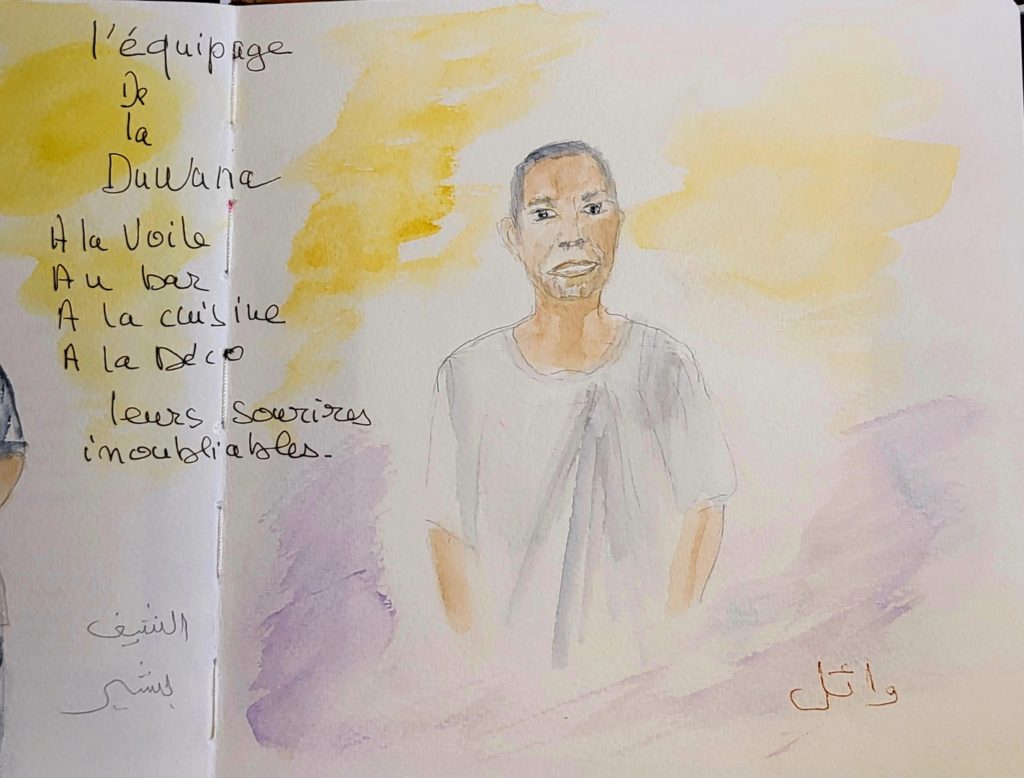 l'équipage
De
la
Dawana
A la Voile
Au bar
A la cuisine
A la Déco
leurs sourires
inoubliables.
الشيف
بشير
وائل